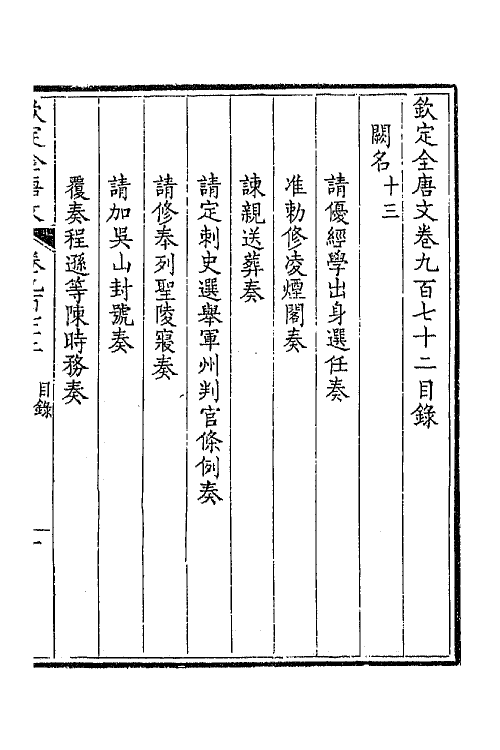 欽定全唐文卷九百七十二目錄
闕名十三
請優經學出身選任奏
准勅修凌煙閣奏
諫親送葬奏
請定刺史選舉軍州判官條例奏
請修奉列聖陵寢奏
請加吳山封號奏
覆奏程遜等陳時務奏
目錄
一